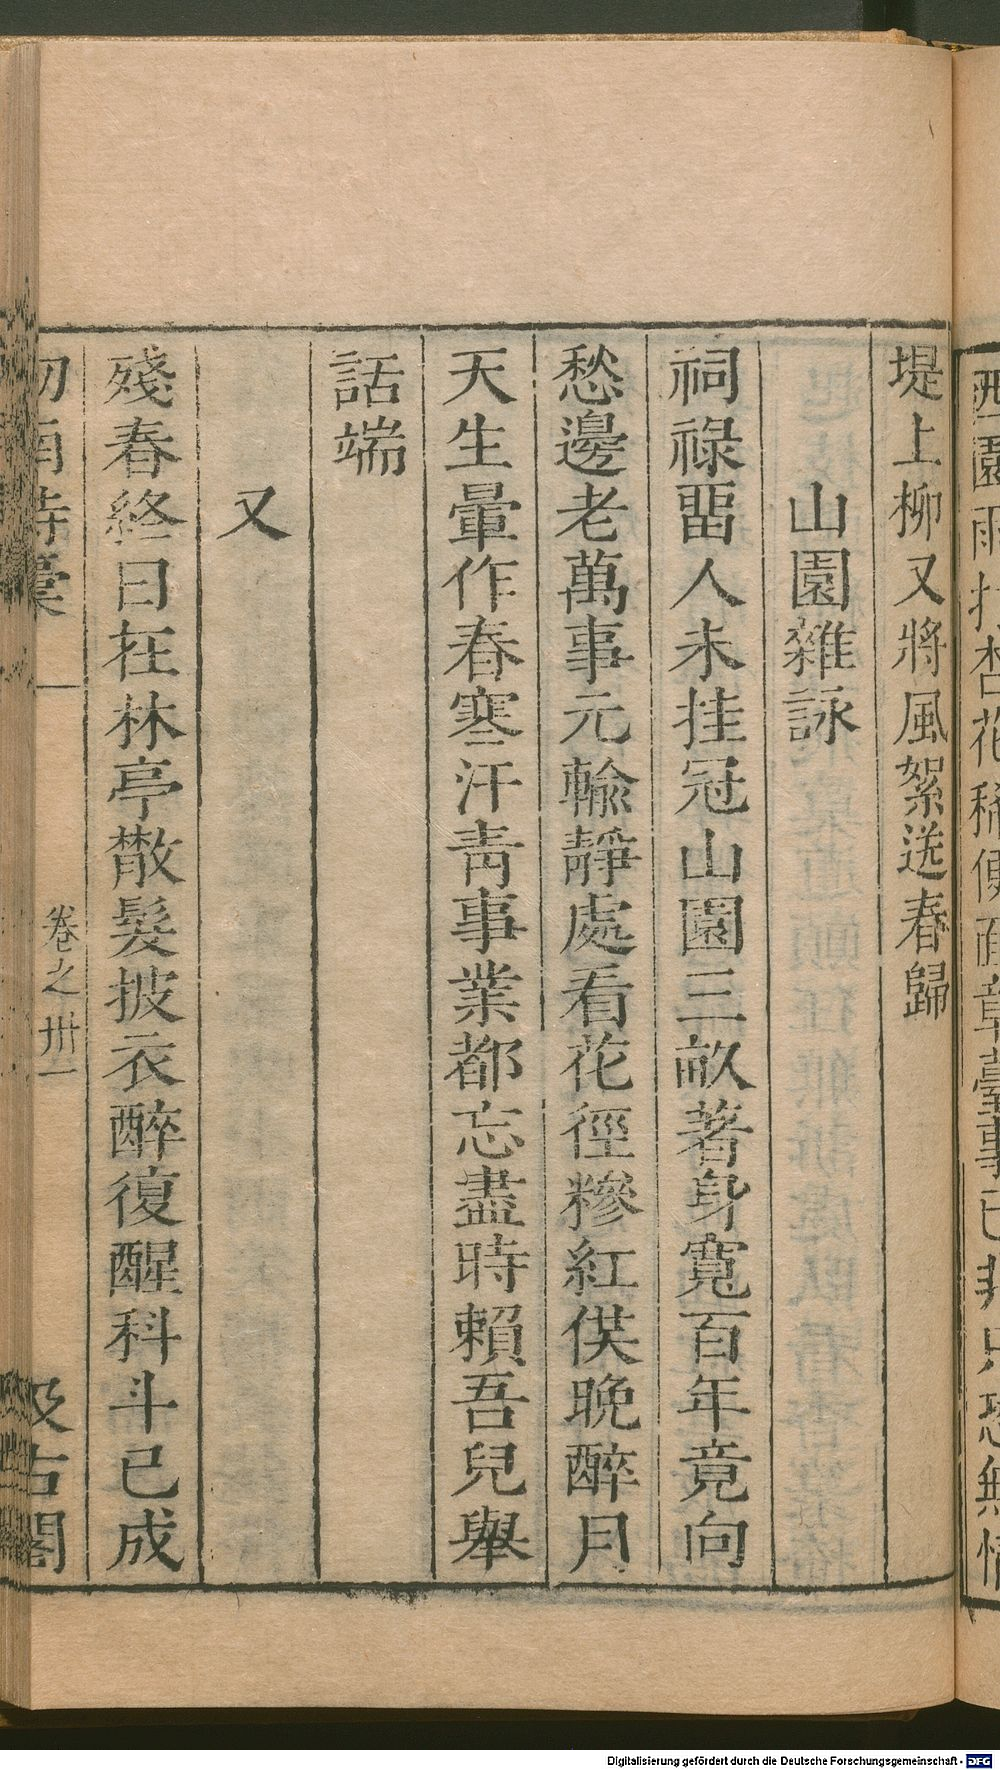 園雨打杏花稀便面章臺事已非只恐無情
堤上柳又將風絮送春歸
山園雜詠
祠祿畱人未挂冠山園三畝著身寬百年竟向
愁邊老萬事元輸靜處看花徑糝紅供晚醉月
天生暈作春寒汗靑事業都忘盡時賴吾兒舉
話端
又
殘春終日在林亭散髮披衣醉復醒科斗已成
劒南詩稾
卷之卅二
汲古閣
Digitalisierung gefördert durch die Deutsche Forschungsgemeinschaft - DFG